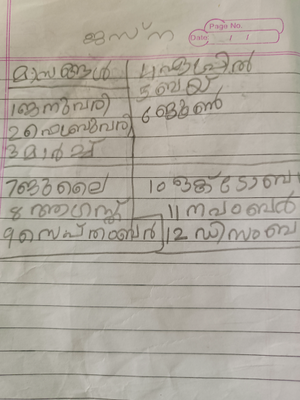 ജസ്ന
Page No.
Date / /
മാസങ്ങൾ
1 ജനുവരി
2 ഫെബ്രുവരി
3 മാർച്ച്
4 ഏപ്രിൽ
5 മെയ്
6 ജൂൺ
7 ജുലൈ
8 ആഗസ്ത്
9 സെപ്തംബർ
10 ഒക്ടോബ
11 നവംബർ
12 ഡിസംബ